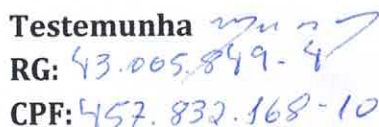 Testemunha
RG: 43.005.849-4
CPF: 457.832.168-10